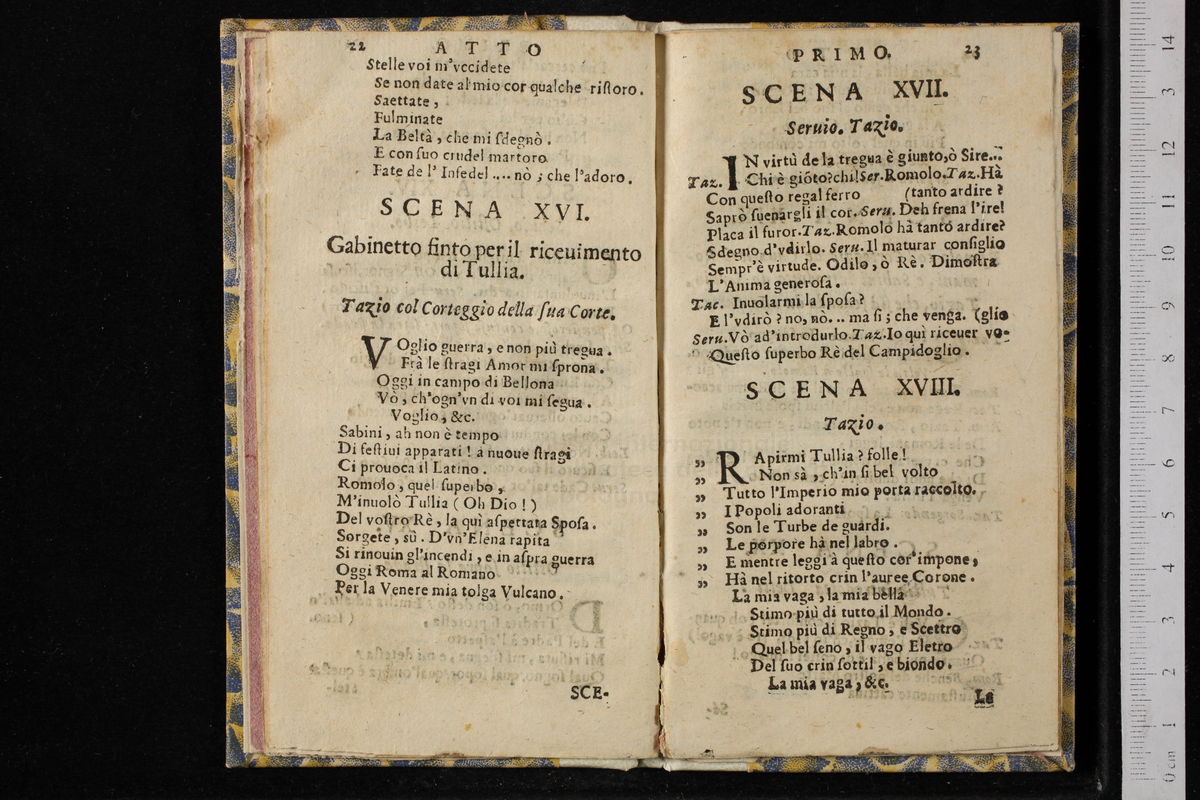 22 ATTO
Stelle voi m'vccidete
Se non date al mio cor qualche riſtoro.
Saettate,
Fulminate
La Beltà, che mi ſdegnò.
E con ſuo crudel martoro
Fate de l'Infedel .... nò; che l'adoro.
SCENA XVI.
Gabinetto finto per il riceuimento
di Tullia.
Tazio col Corteggio della ſua Corte.
VOglio guerra, e non più tregua.
Frà le ſtragi Amor mi ſprona.
Oggi in campo di Bellona
Vò, ch'ogn'vn di voi mi ſegua.
Voglio, &c.
Sabini, ah non è tempo
Di feſtiui apparati! à nuoue ſtragi
Ci prouoca il Latino.
Romolo, quel ſuperbo,
M'inuolò Tullia (Oh Dio!)
Del voſtro Rè, la quì aſpettata Spoſa.
Sorgete, sù. D'vn'Elena rapita
Si rinouin gl'incendi, e in aſpra guerra
Oggi Roma al Romano
Per la Venere mia tolga Vulcano.
SCE-
PRIMO. 23
SCENA XVII.
Seruio. Tazio.
IN virtù de la tregua è giunto,ò Sire...
Taz. Chi è giõto?chi!Ser.Romolo.Taz.Hà
Con queſto regal ferro (tanto ardire?
Saprò ſuenargli il cor. Seru. Deh frena l'ire!
Placa il furor.Taz.Romolo hà tanto ardire?
Sdegno d'vdirlo. Seru. Il maturar conſiglio
Sempr'è virtude. Odilo, ò Rè. Dimoſtra
L'Anima generoſa.
Tac. Inuolarmi la ſpoſa?
E l'vdirò? no, nò... ma ſi; che venga. (glio
Seru.Vò ad'introdurlo.Taz.Io quì riceuer vo-
Queſto ſuperbo Rè del Campidoglio.
SCENA XVIII.
Tazio.
„ RApirmi Tullia? folle!
„ Non sà, ch'in ſi bel volto
„ Tutto l'Imperio mio porta raccolto.
„ I Popoli adoranti
„ Son le Turbe de guardi.
„ Le porpore hà nel labro.
„ E mentre leggi à queſto cor'impone,
„ Hà nel ritorto crin l'auree Corone.
La mia vaga, la mia bella
Stimo più di tutto il Mondo.
Stimo più di Regno, e Scettro
Quel bel ſeno, il vago Eletro
Del ſuo crin ſottil, e biondo.
La mia vaga, &c.
Le